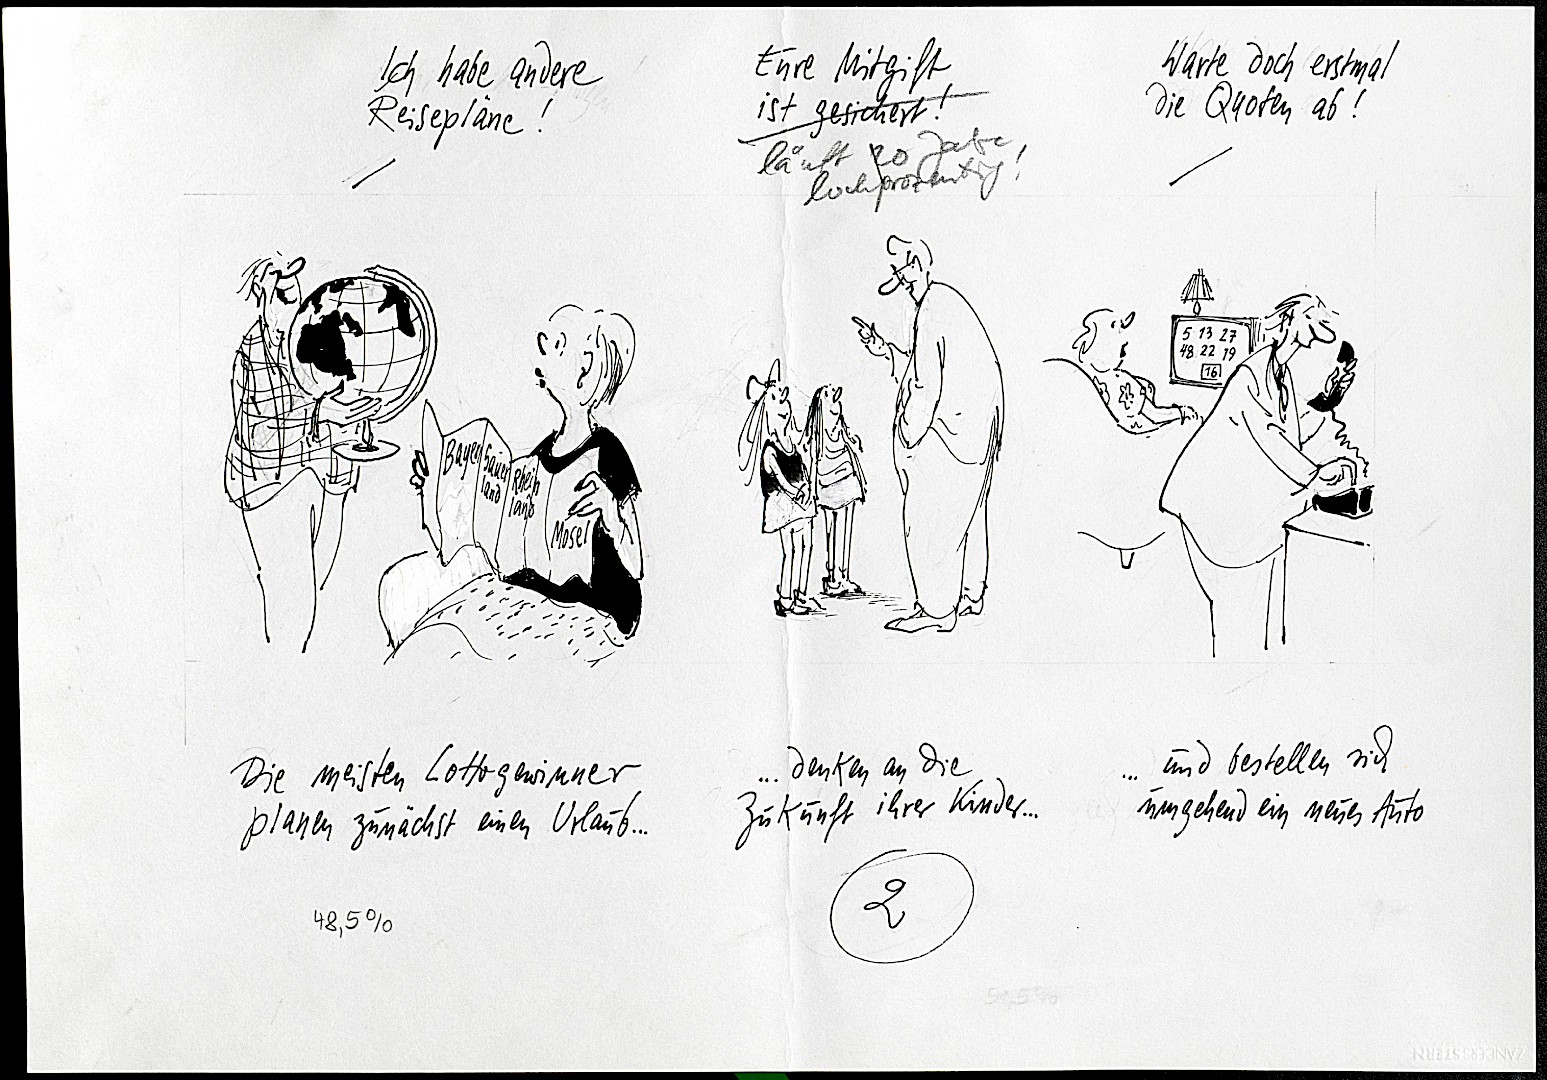 Ich habe andere
Reisepläne!
Eure Mitgift
ist gesichert!
läuft 20 Jahre
hochprozentig!
Warte doch erstmal
die Quoten ab!
Bayern
Sauer
land
Rhein
land
Mosel
5 13 27
48 22 19
16
Die meisten Lottogewinner
planen zunächst einen Urlaub...
... denken an die
Zukunft ihrer Kinder...
... und bestellen sich
umgehend ein neues Auto
48,5%
2
ZANDERS STERN